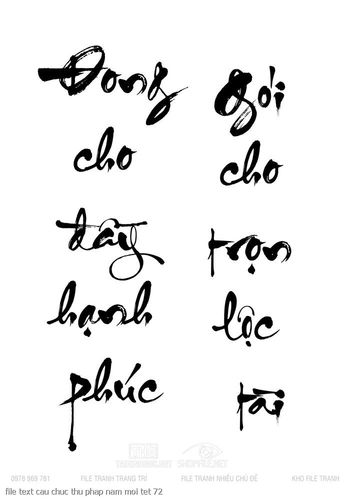 Đong
cho
đầy
hạnh
phúc
gói
cho
trọn
lộc
tài
SHOPFILE.NET
FILE TRANH TRANG TRÍ
FILE TRANH NHIỀU CHỦ ĐỀ
KHO FILE TRANH
file text cau chuc thu phap nam moi tet 72